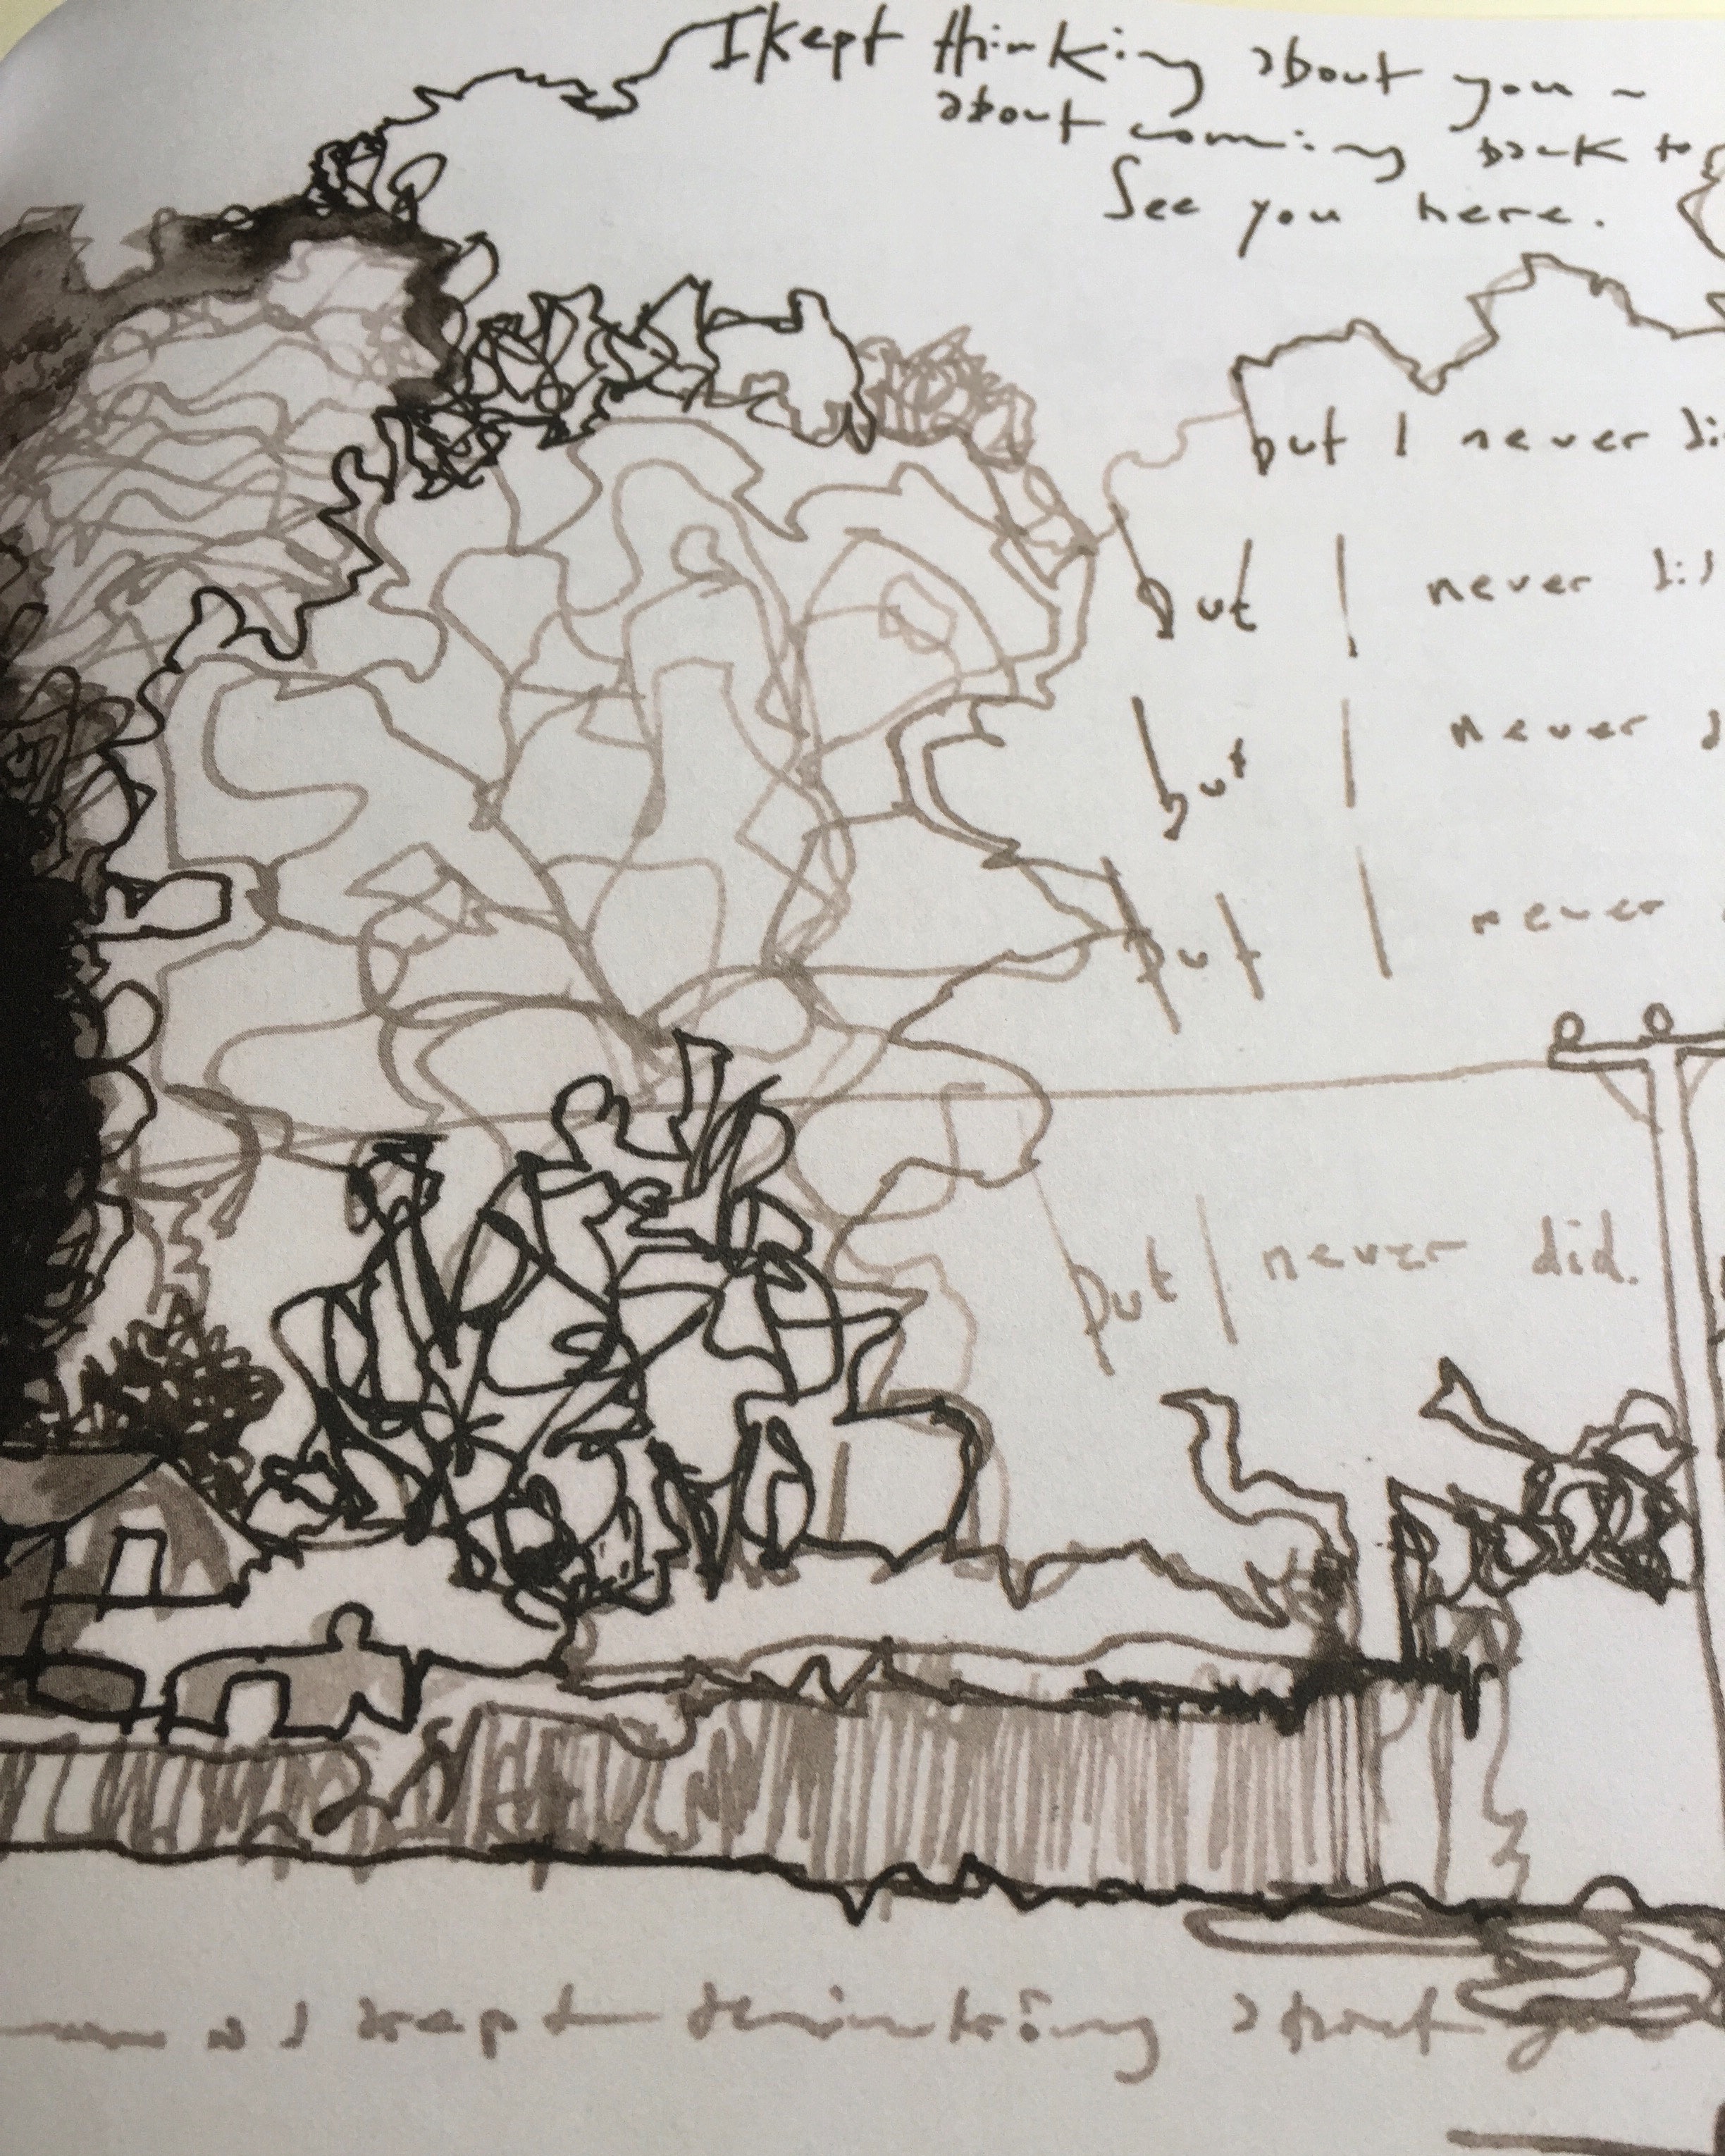 I kept thinking about you ~
about coming back to
See you here.
but I never di
but I never did
but I never d
but I never
but I never did.
I kept thinking about you